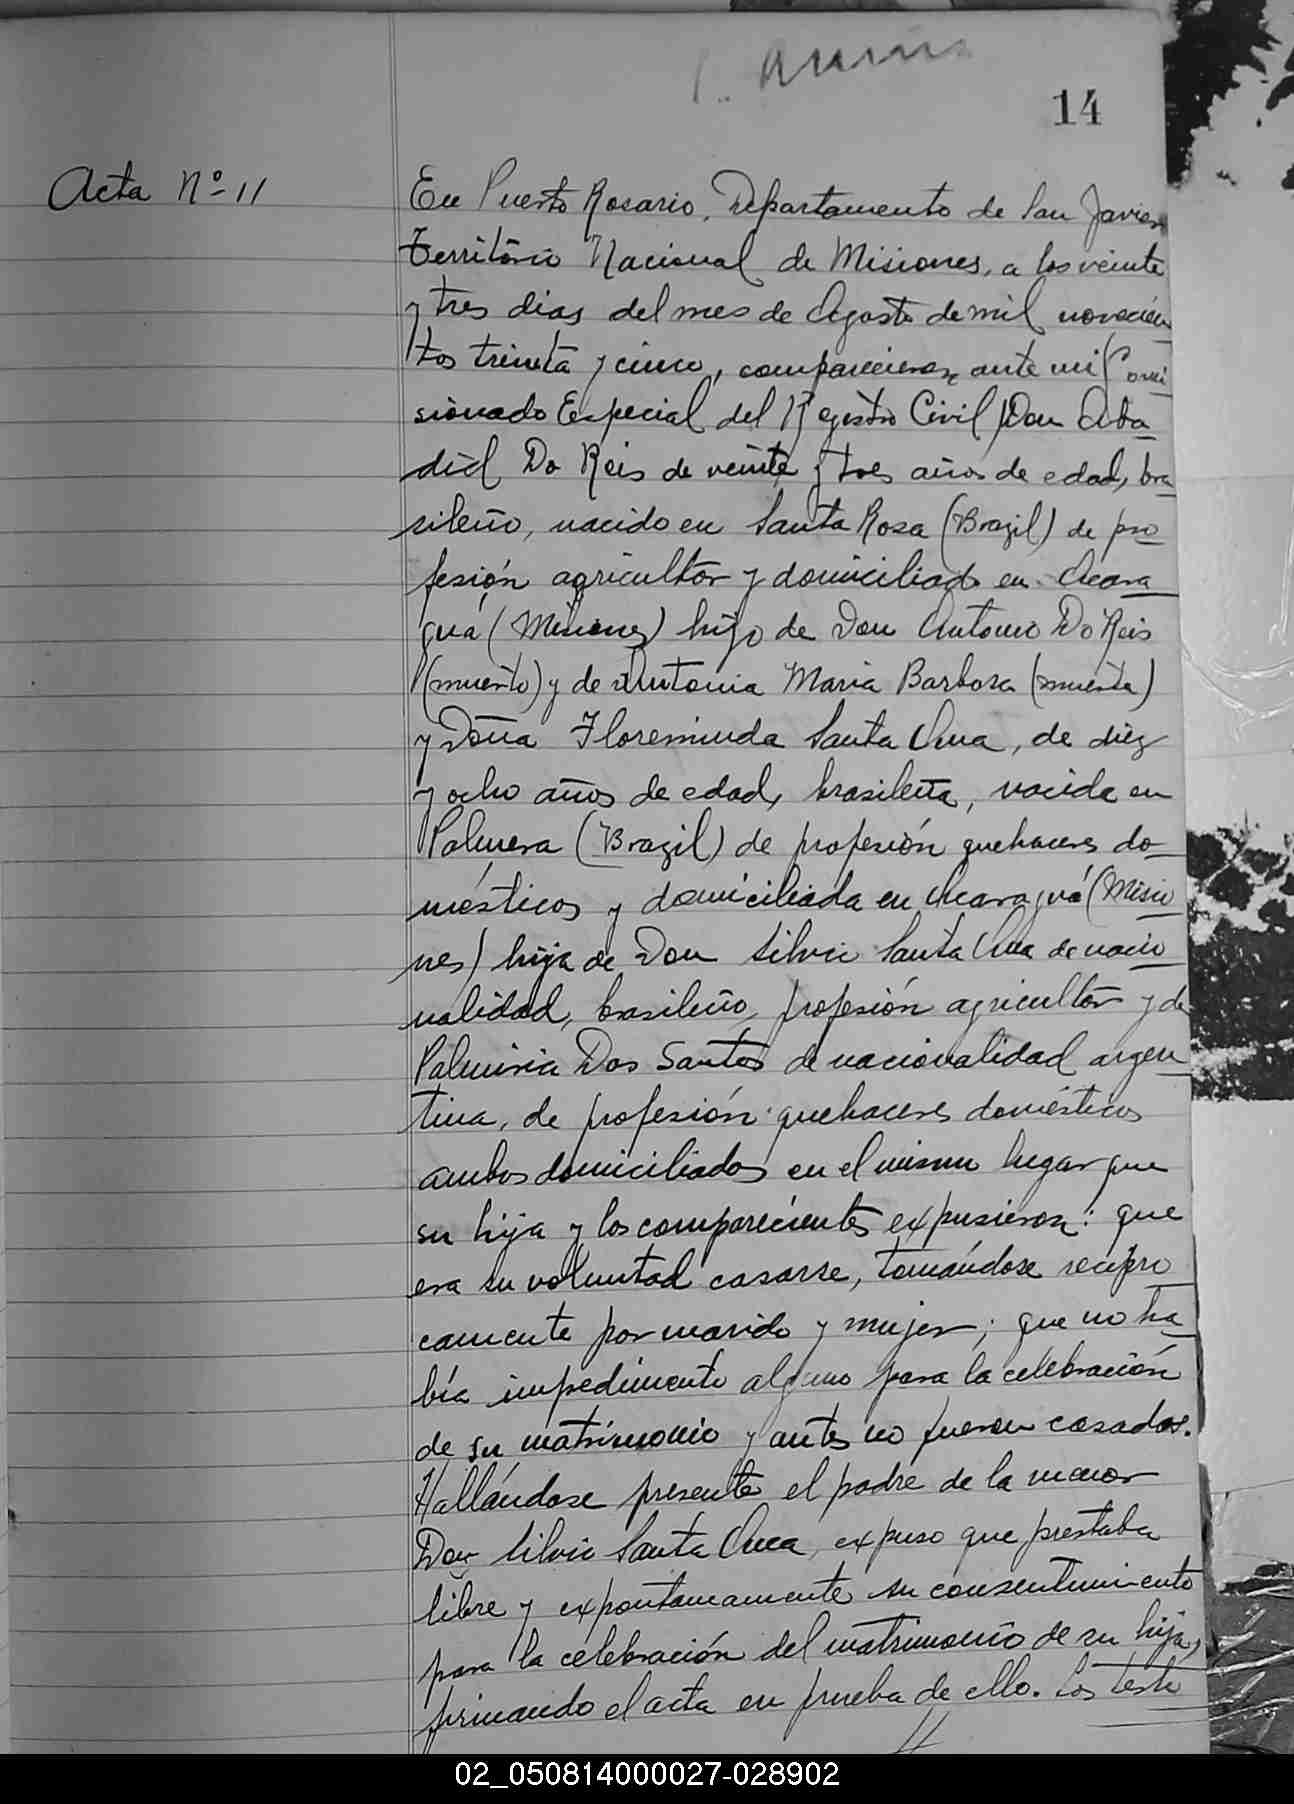 14
Acta Nº 11
En Puerto Rosario, Departamento de San Javier
Territorio Nacional de Misiones, a los veinte
y tres dias del mes de Agosto de mil novecien
tos treinta y cinco, comparecieron ante mi Comi
sionado Especial del Registro Civil, Don Aba
diel Do Reis de veinte y tres años de edad, bra
sileño, nacido en Santa Rosa (Brazil) de pro
fesión agricultor y domiciliado en Acara
guá (Misiones) hijo de Don Antonio Do Reis
(muerto) y de Antonia Maria Barbosa (muerta)
y Doña Floreminda Santa Ana, de diez
y ocho años de edad, brasileña, nacida en
Palmera (Brazil) de profesión quehaceres do
mésticos y domiciliada en Acaraguá (Misio
nes) hija de Don Silvio Santa Ana de nacio
nalidad, brasileño, profesión agricultor y de
Palmiria Dos Santos de nacionalidad argen
tina, de profesión quehaceres domésticos
ambos domiciliados en el mismo lugar que
su hija y los comparecientes expusieron: que
era su voluntad casarse, tomándose recípro
camente por marido y mujer; que no ha
bía impedimento alguno para la celebración
de su matrimonio y antes no fueron casados.
Hallándose presente el padre de la menor
Don Silvio Santa Ana, expuso que prestaba
libre y expontaneamente su consentimiento
para la celebración del matrimonio de su hija,
firmando el acta en prueba de ello. Los testi
02_050814000027-028902